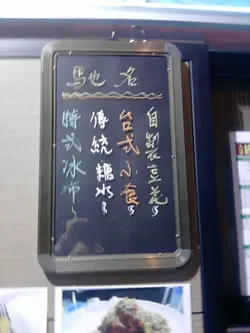 馳名
自製豆花
台式小食
傳統糖水
特式冰